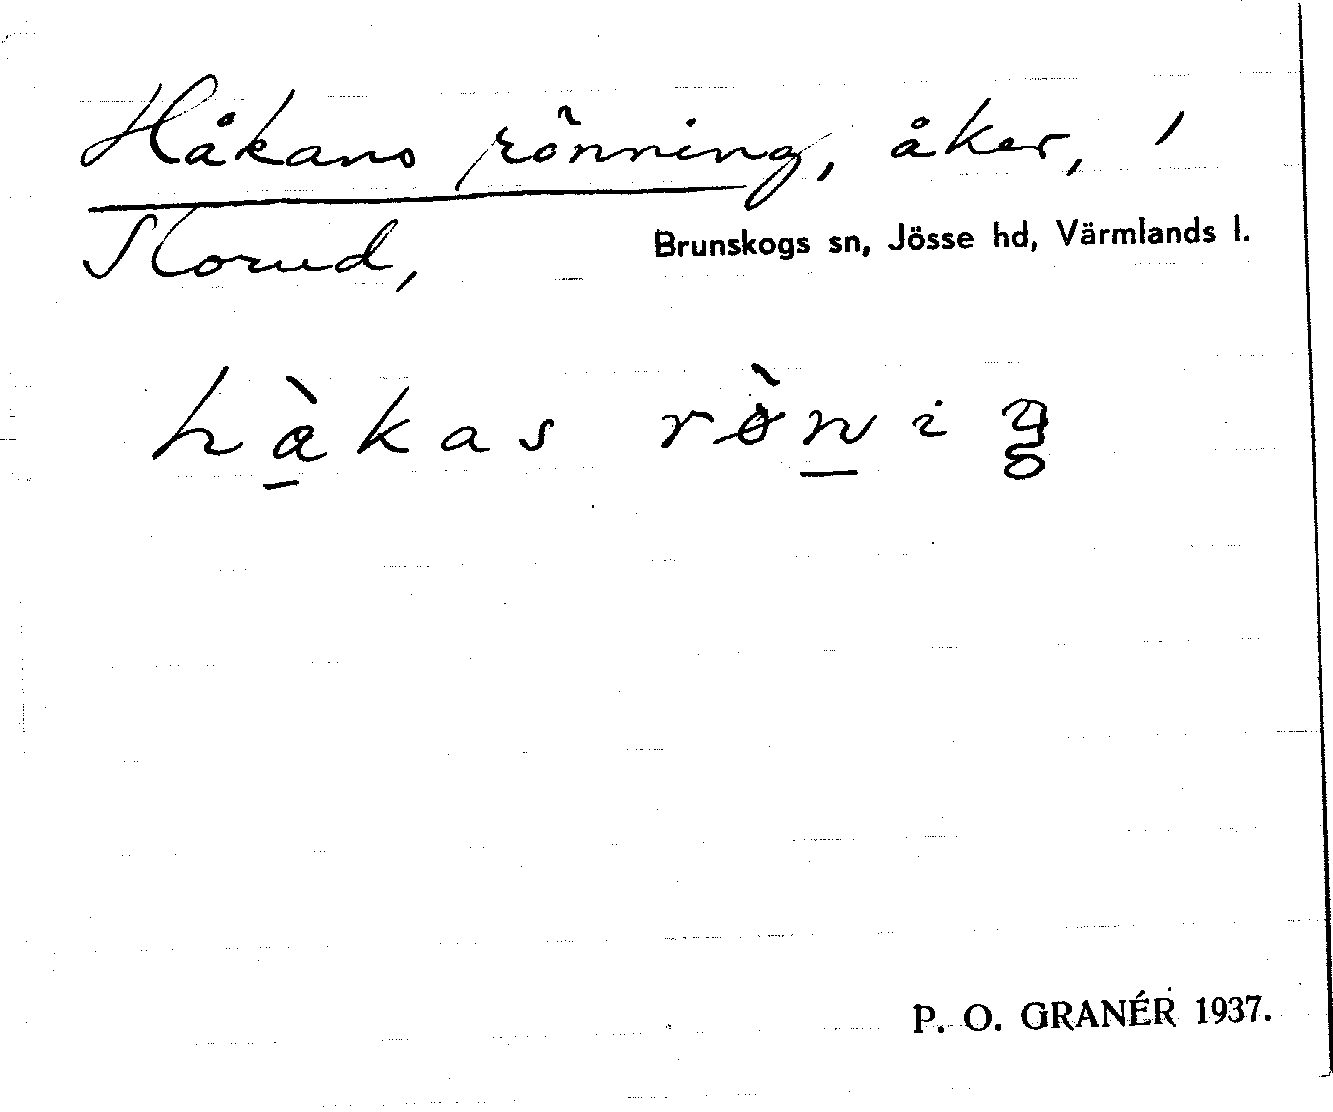 Håkans rönning, åker, 1
Slorud,
Brunskogs sn, Jösse hd, Värmlands l.
hàkas rònig
P. O. GRANÉR 1937.